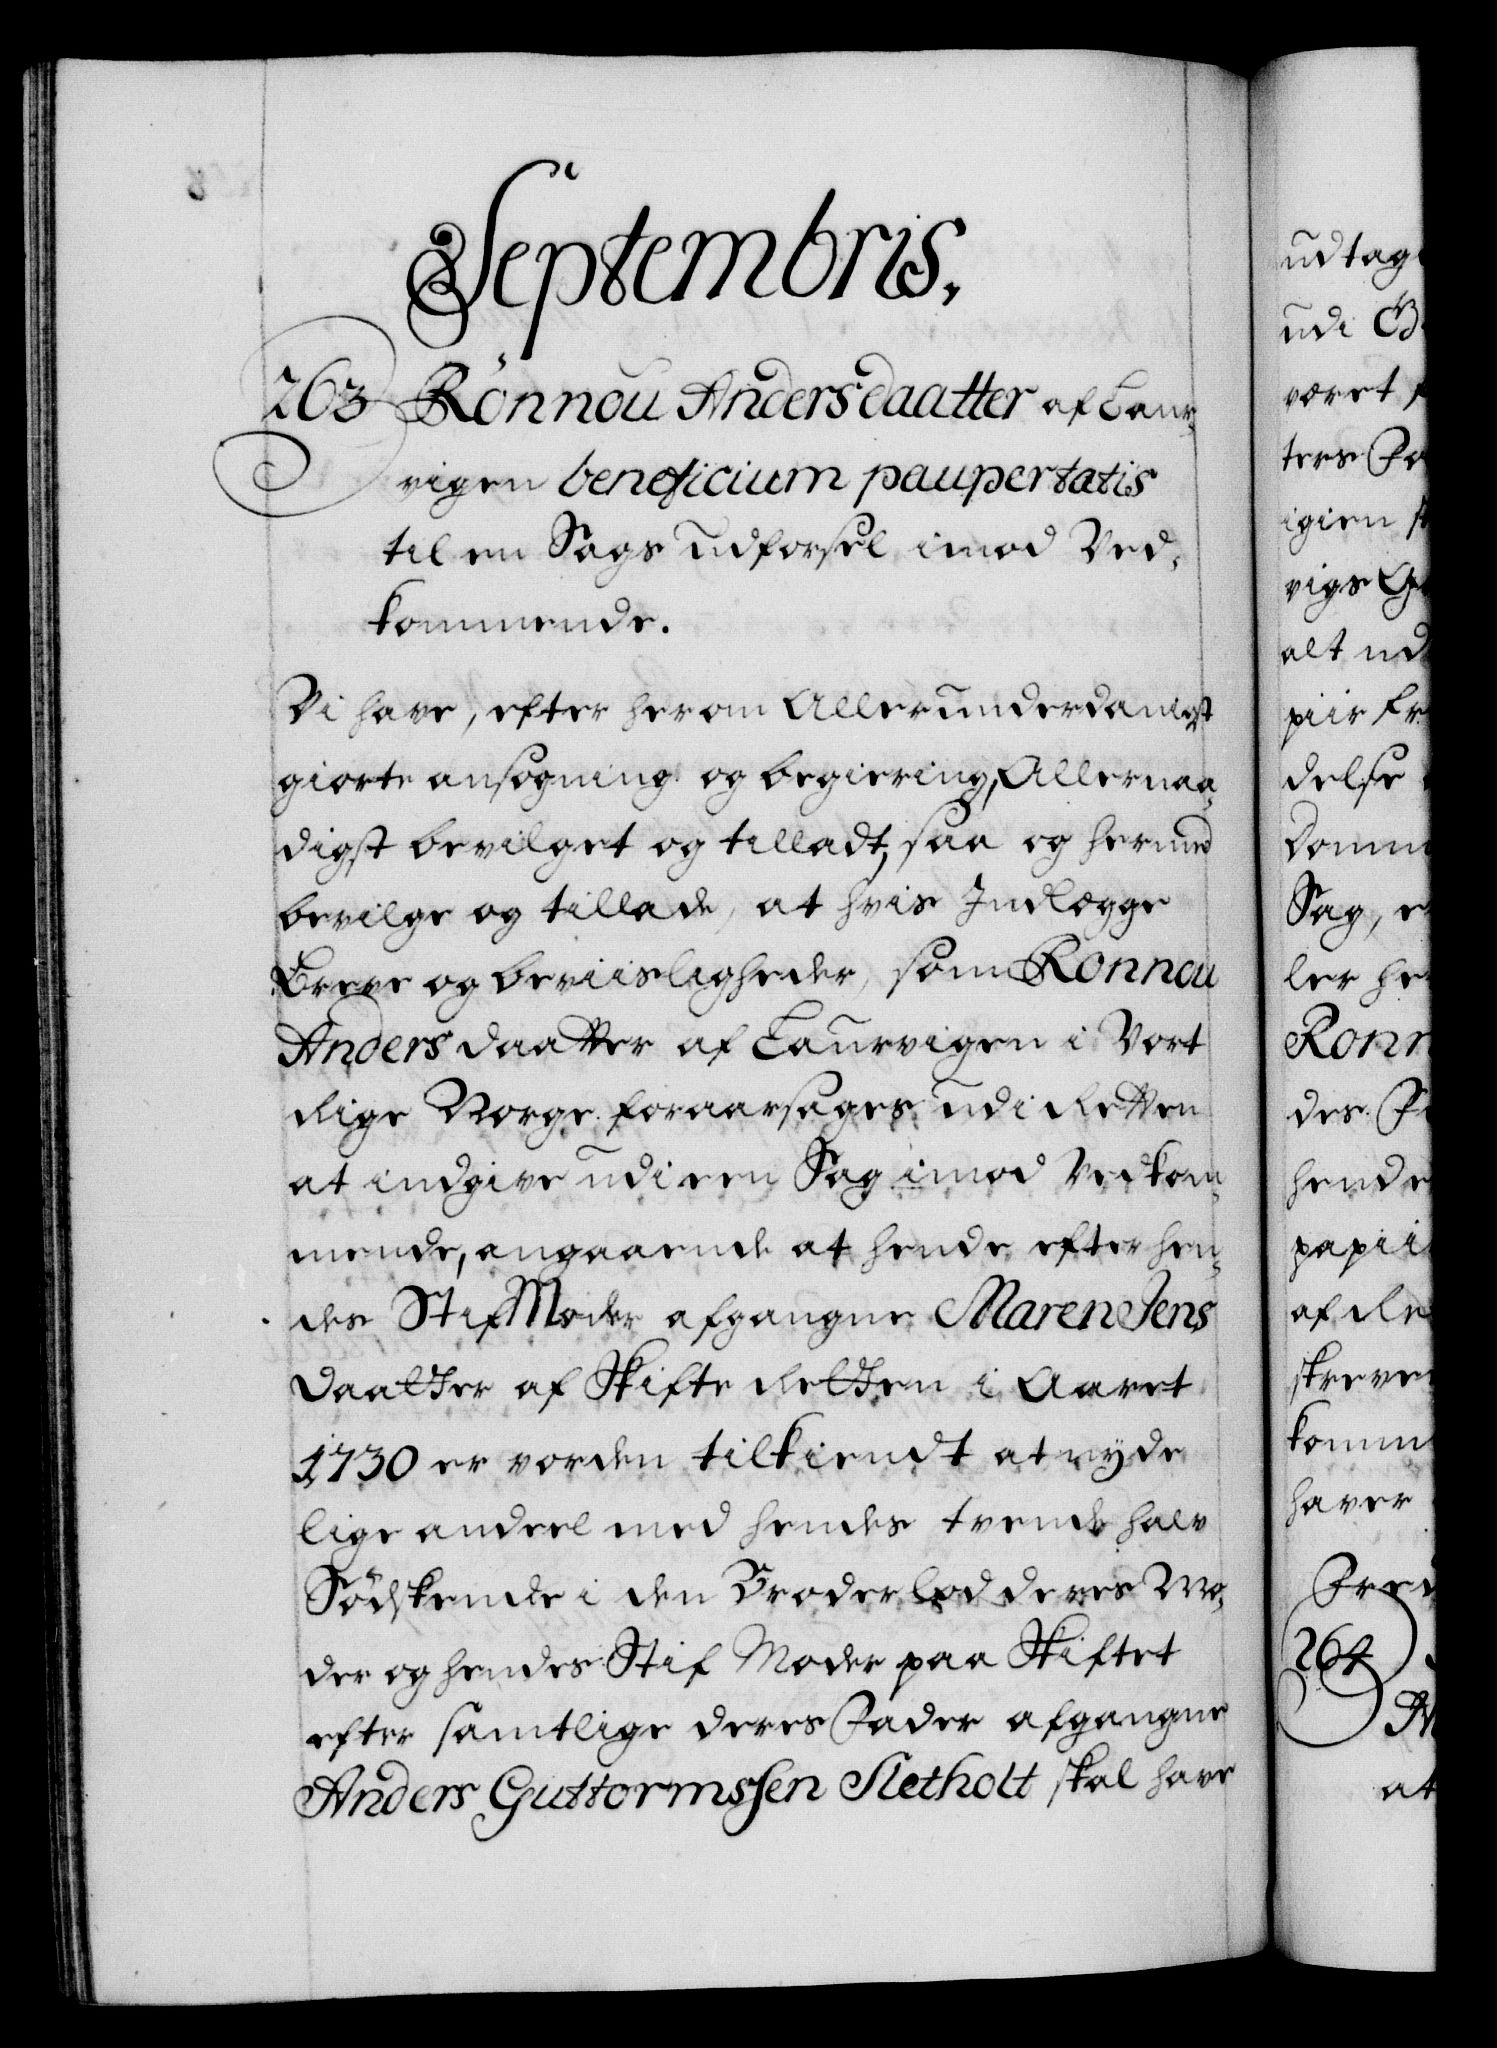 Septembris.
263 Rönnou Andersdaatter af Laur-
vigen beneficium paupertatis
til en Sags udførsel imod Ved-
kommende.
Vi have, efter herom Allerunderdanigst
giorte ansøgning og begiering, Allernaa-
digst bevilget og tilladt, saa og hermed
bevilge og tillade, at hvis Indlægge
Breve og beviisligheder, som Ronnou
Anders daatter af Laurvigen i Vort
Rige Norge foraarsages udi Retten
at indgive udi een Sag imod Vedkom-
mende, angaaende at hende efter hen-
des StifModer afgangne Maren Jens
Daatter af Skifte Retten i Aaret
1730 er vorden tilkiendt at nyde
lige andeel med hendes tvende halv
Södskende i den Broderlod deres Mo-
der og hendes Stif Moder paa Skiftet
efter samtlige deres Fader afgangne
Anders Guttormssen Sletholt skal have
udtag
udi
været
ters
igien
vigs
alt ud
piir
delse
Domm
Sag,
ler
Ronn
des
hende
papii
af Re
skreve
komm
haver
264
at